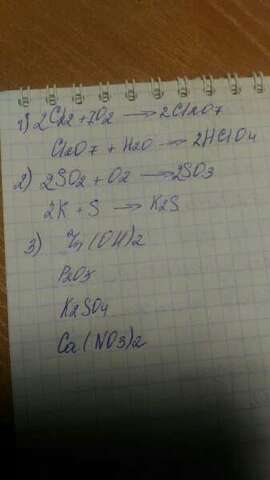 1) 2Cl2 + 7O2 → 2Cl2O7
Cl2O7 + H2O → 2HClO4
2) 2SO2 + O2 → 2SO3
2K + S → K2S
3) Zn(OH)2
P2O5
K2SO4
Ca(NO3)2